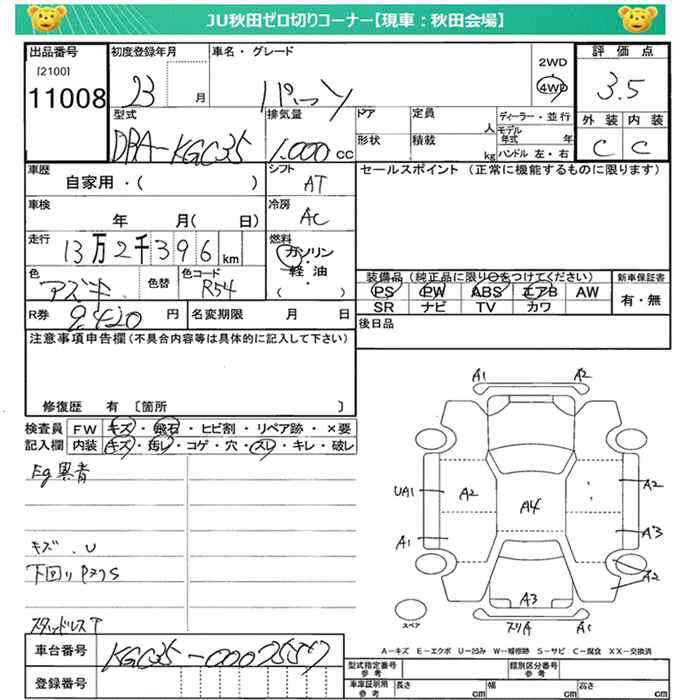 JU秋田ゼロ切りコーナー【現車：秋田会場】
出品番号 初度登録年月 車名・グレード 2WD 評価点
[2100] 4WD
11008 23 月 パッソ 3.5
型式 排気量 ドア 定員 人 ディーラー・並行 外装 内装
DBA-KGC35 1.000 cc 形状 積載 kg モデル年式 年 C C
ハンドル 左・右
車歴 シフト セールスポイント（正常に機能するものに限ります）
自家用・（ ） AT
車検 冷房
年 月（ 日） AC
走行 燃料
13万2千396km ガソリン・軽油・（ ）
色 色替 色コード 装備品（純正品に限り○をつけてください） 新車保証書
アズキ R54 PS PW ABS エアB AW 有・無
SR ナビ TV カワ
R券 9,420 円 名変期限 月 日 後日品
注意事項申告欄（不具合内容等は具体的に記入して下さい）
修復歴 有 〔箇所 〕
検査員 FW キズ・飛石・ヒビ割・リペア跡・×要
記入欄 内装 キズ・汚レ・コゲ・穴・スレ・キレ・破レ
Eg異音
キズ.U
下回りPヌリS
スタッドレスT
A1 A2
UA1 A2 A4 A2
A1 A3
A2
A3
スペア スリA A1
A-キズ E-エクボ U-凹み W-補修跡 S-サビ C-腐食 XX-交換済
車台番号 KGC35-0007557
登録番号
型式指定番号 参考 類別区分番号 参考
車庫証明用 参考 長さ cm 幅 cm 高さ cm